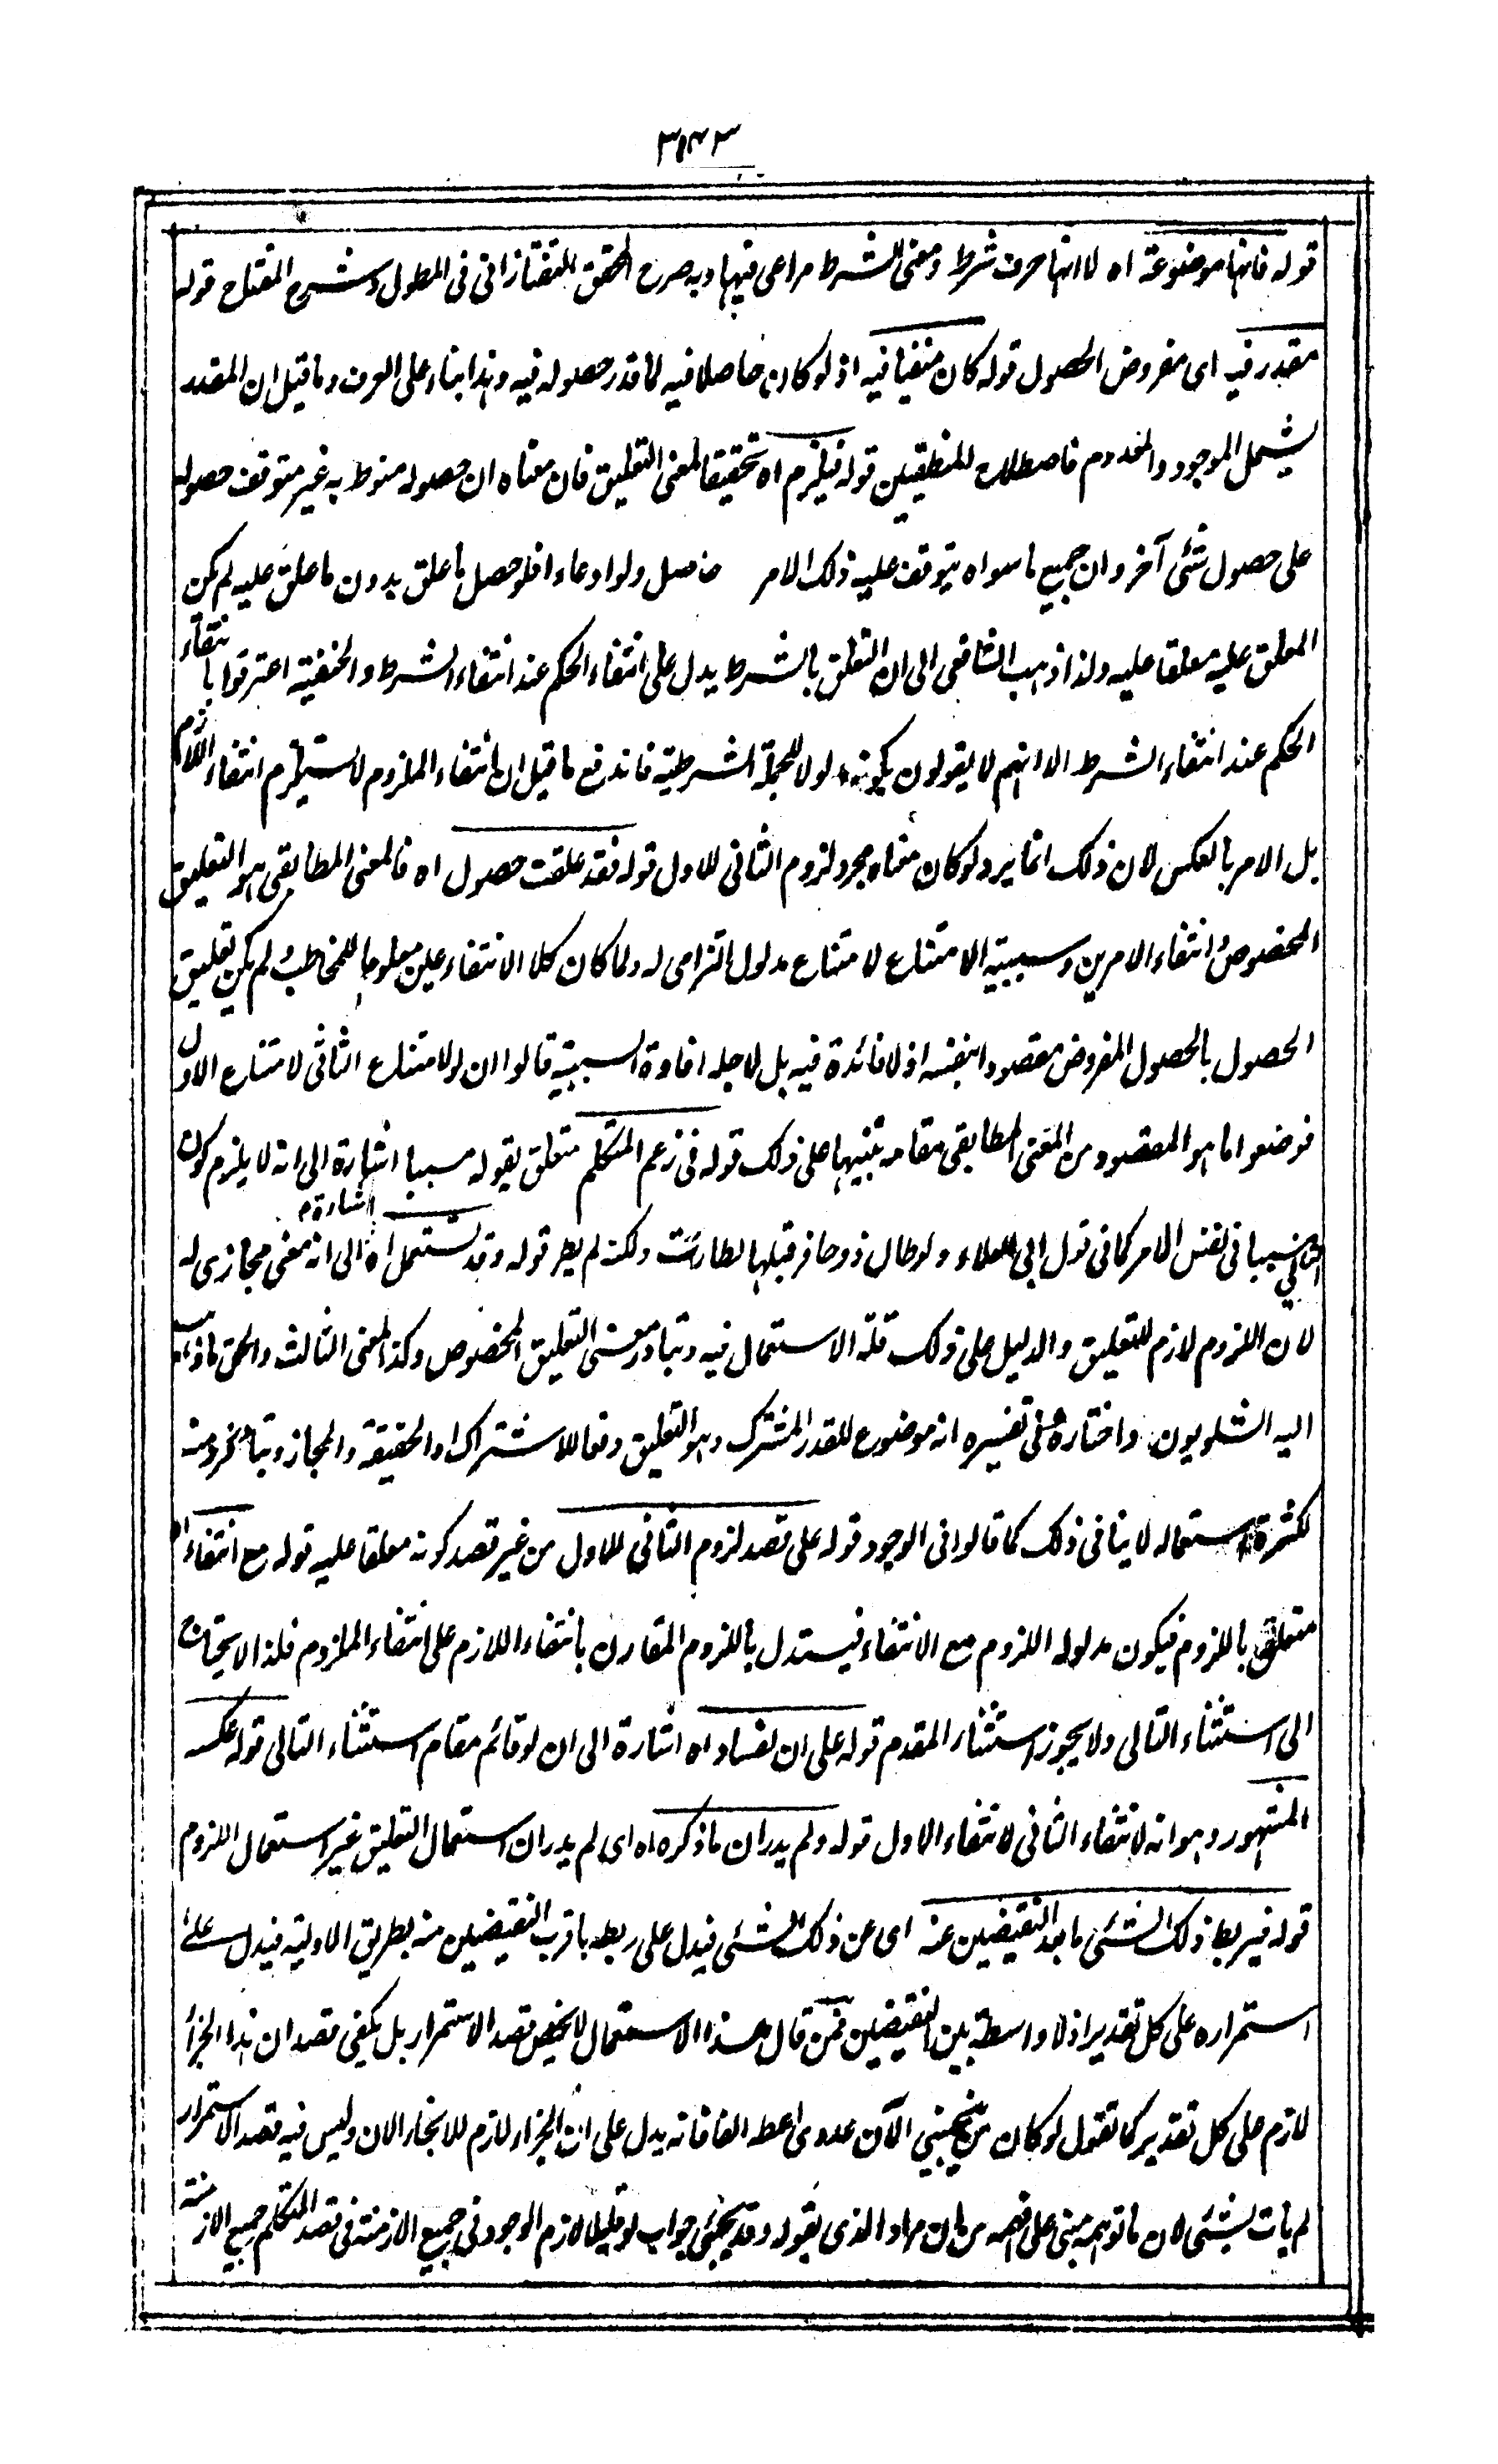 ٣٤٣
قوله فانها موضوعة اه لا انها حرف شرط ومعنى الشرط مراعى فيها وبه صرح المحقق التفتازانى فى المطول وشرح المفتاح قوله
مقدر فيه اى مفروض الحصول قوله كان منفيا فيه اذ لو كان حاصلا فيه لما قدر حصوله فيه وهذا بناء على العرف وما قيل ان المقدر
يشمل الموجود والمعدوم فاصطلاح للمنطقيين قوله فيلزم اه تحقيقا لمعنى التعليق فان معناه ان حصوله منوط به غير متوقف حصوله
على حصول شئ آخر وان جميع ما سواه يتوقف عليه ذلك الامر حاصل ولو ادعاء فلو حصل ما علق بدون ما علق عليه لم يكن
المعلق عليه معلقا عليه ولذا ذهب الشافعى الى ان التعلق بالشرط يدل على انتفاء الحكم عند انتفاء الشرط والحنفية اعترفوا بانتفاء
الحكم عند انتفاء الشرط الا انهم لا يقولون بكونه مدلولا للجملة الشرطية فاندفع ما قيل ان انتفاء الملزوم لا يستلزم انتفاء اللازم
بل الامر بالعكس لان ذلك انما يرد لو كان معناه مجرد لزوم الثانى للاول قوله فقد علقت حصول اه فالمعنى المطابقى هو التعليق
المخصوص وانتفاء الامرين وسببية الامتناع لامتناع مدلول التزامى له ولما كان كلا الانتفاءين معلوما للمخاطب لم يكن تعليق
الحصول بالحصول المفروض مقصودا بنفسه اذ لا فائدة فيه بل لاجله افادة السببية قالوا ان لو لامتناع الثانى لامتناع الاول
فوضعوا ما هو المقصود من المعنى المطابقى مقامه تنبيها على ذلك قوله فى زعم المتكلم متعلق بقوله مسببا اشارة الى انه لا يلزم كون
الثانى سببا فى نفس الامر كما فى قول ابى العلاء ولو طار ذو حافر قبلها لطارت ولكنه لم يطر قوله وقد تستعمل اه اشارة الى انه معنى مجازى له
لان اللزوم لازم للتعليق والدليل على ذلك قلة الاستعمال فيه وتبادر معنى التعليق المخصوص وكذا المعنى الثالث والحق ما ذهب
اليه الشلوبون واختاره فى تفسيره انه موضوع للقدر المشترك وهو التعليق دفعا للاشتراك او الحقيقة والمجاز وتبادر غيره منه
لكثرة استعماله لا ينافى ذلك كما قالوا فى الوجود قوله على قصد لزوم الثانى للاول من غير قصد كونه معلقا عليه قوله مع انتفاء اه
متعلق باللزوم فيكون مدلوله اللزوم مع الانتفاء فيستدل باللزوم المقارن بانتفاء اللازم على انتفاء الملزوم فلذا لا يحتاج
الى استثناء التالى ولا يجوز استثناء المقدم قوله على ان لفساد اه اشارة الى ان لو قائم مقام استثناء التالى قوله عكس
المشهور وهو انه لانتفاء الثانى لانتفاء الاول قوله ولم يدر ان ما ذكره اه اى لم يدر ان استعمال التعليق غير استعمال اللزوم
قوله فيربط ذلك الشئ بابعد النقيضين عنه اى عن ذلك الشئ فيدل على ربطه باقرب النقيضين منه بطريق الاولية فيدل على
استمراره على كل تقدير اذ لا واسطة بين النقيضين فمن قال هذا الاستعمال لا يخص قصد الاستمرار بل يكفى قصد ان هذا الجزاء
لازم على كل تقدير كما تقول لو كان من يجيبنى الآن عدوى اعطه الفا فانه يدل على ان الجزاء لازم للانجاز الآن وليس فيه قصد الاستمرار
لم يات بشئ لان ما توهمه مبنى على من ان مراد الذى بقوله وقد يجئ جواب لو قليلا لازم الوجود فى جميع الازمنة فى قصد المتكلم جميع الازمنة